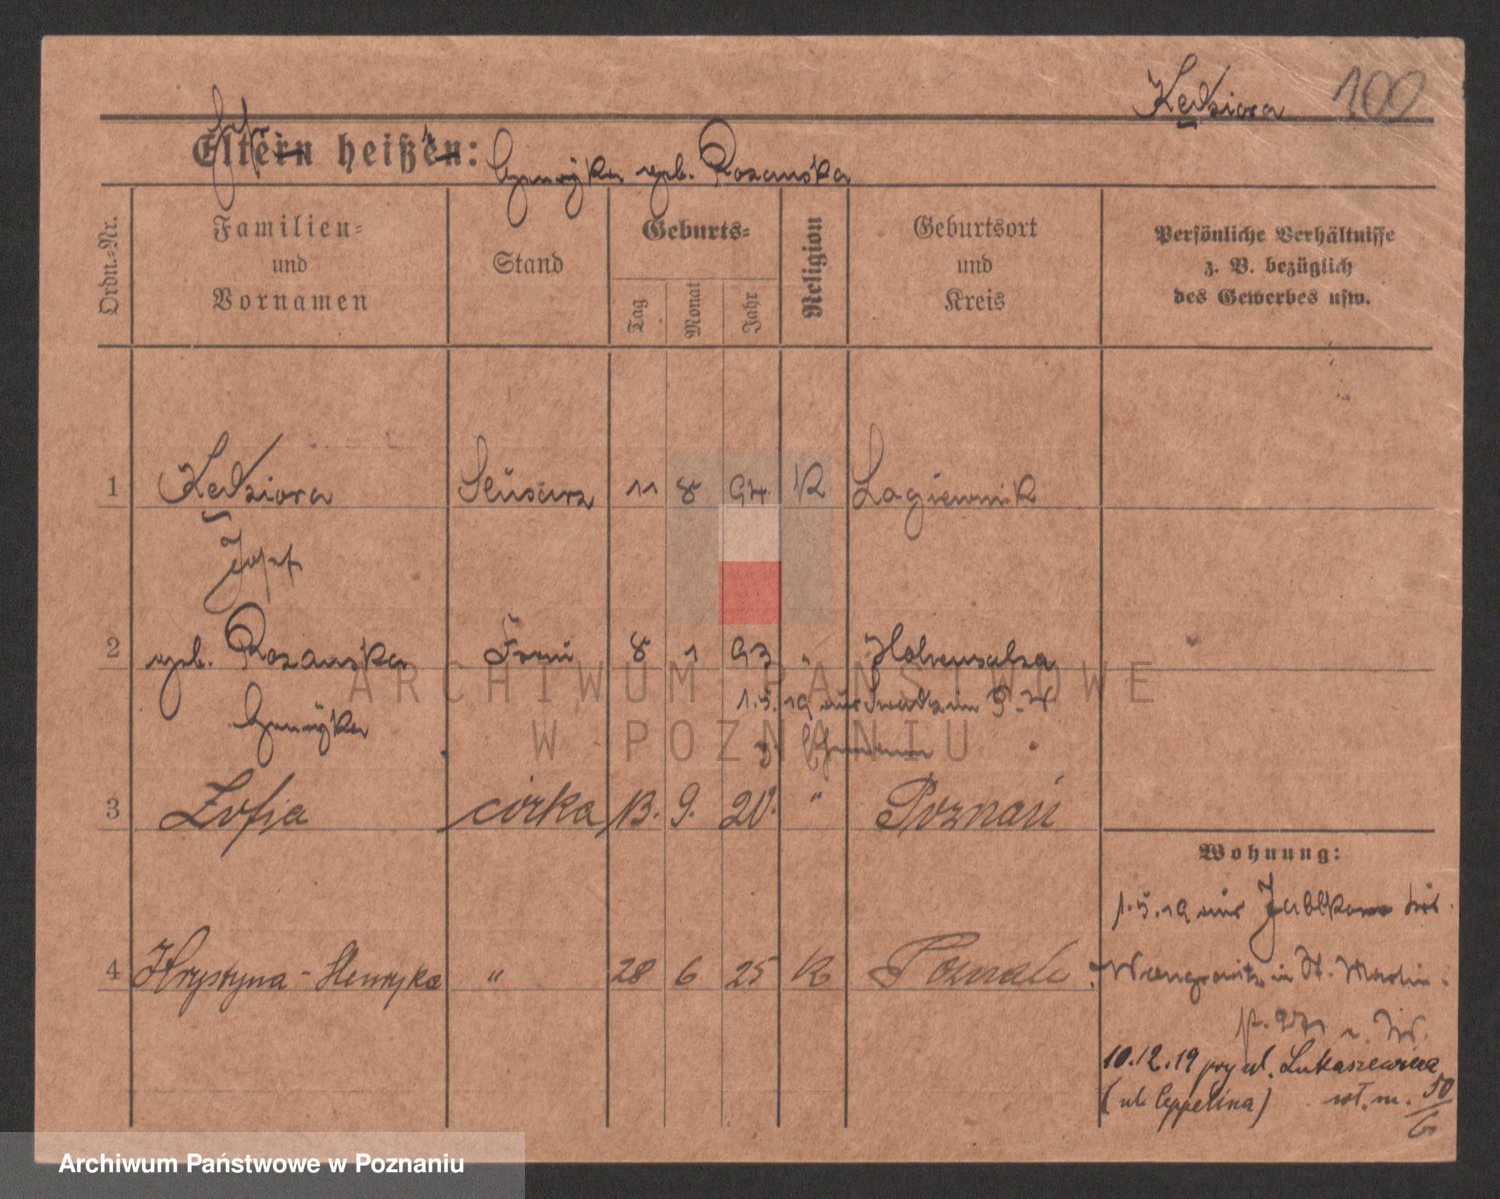 Kędziora 100
Eltern heißen: Henryka geb. Rozanska
Ordn.-Nr.
Familien- und Vornamen
Stand
Geburts-
Tag Monat Jahr
Religion
Geburtsort und Kreis
Persönliche Verhältnisse
z. B. bezüglich
des Gewerbes usw.
1 Kędziora Slusarz 11 8 94 K Lagiewnik
Josef
2 geb. Rozanska Frau 8 1 93 " Hohensalza
Henryka
1.5.19 aus
3 Zofja córka 13. 9. 20. " Poznań
Wohnung:
1.5.19 aus
4 Krystyna-Henryka " 28 6 25 K Poznań
Wongrowitz in St. Martin
10.12.19 przy ul. Łukaszewicza
(ul. Ceppelina) wł. m. 50
6
ARCHIWUM PAŃSTWOWE
W POZNANIU
Archiwum Państwowe w Poznaniu